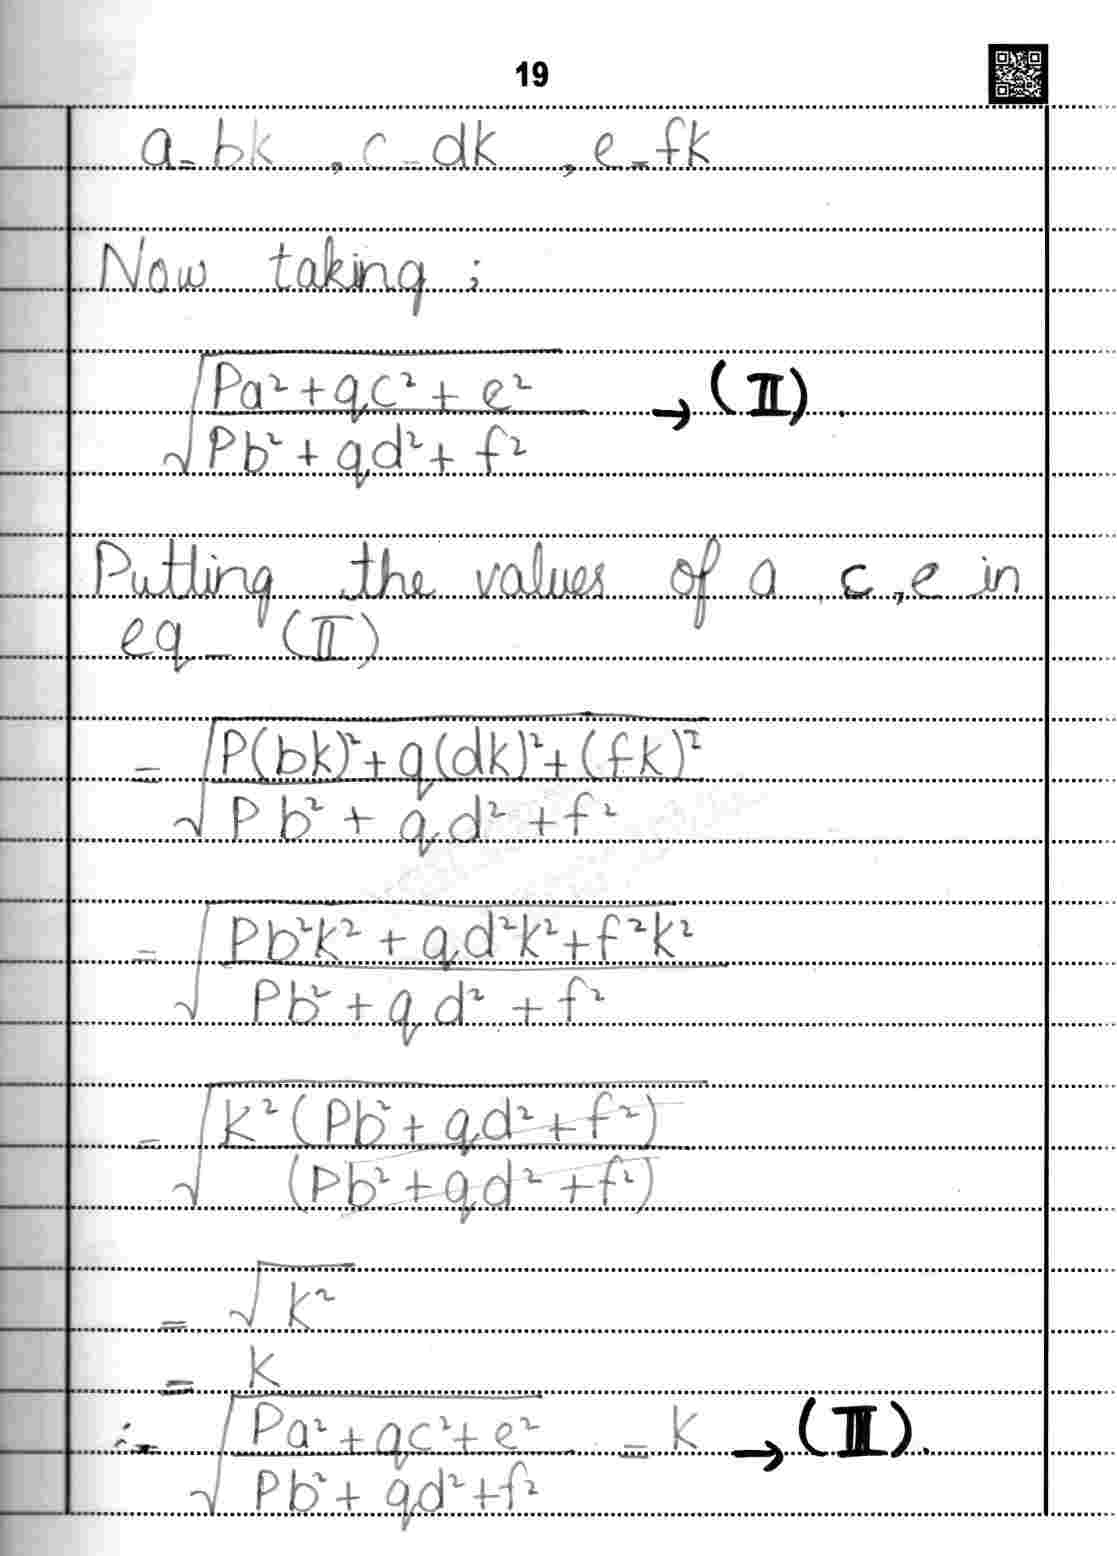 19
a = bk , c = dk , e = fk
Now taking ;
√(Pa² + qc² + e² / Pb² + qd² + f²) → (II).
Putting the values of a , c , e in
eq _ (II)
= √(P(bk)² + q(dk)² + (fk)² / Pb² + qd² + f²)
= √(Pb²k² + qd²k² + f²k² / Pb² + qd² + f²)
= √(k²(Pb² + qd² + f²) / (Pb² + qd² + f²))
= √k²
= k
∴ = √(Pa² + qc² + e² / Pb² + qd² + f²) = k → (III).